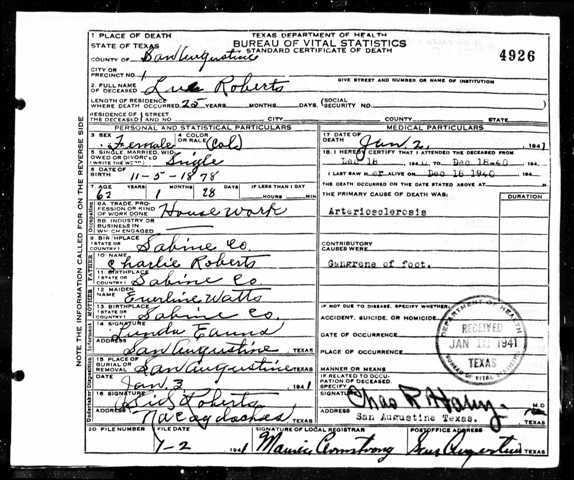 1 PLACE OF DEATH
TEXAS DEPARTMENT OF HEALTH
BUREAU OF VITAL STATISTICS
STANDARD CERTIFICATE OF DEATH
4926
STATE OF TEXAS
COUNTY OF San Augustine
CITY OR PRECINCT NO. 1
GIVE STREET AND NUMBER OR NAME OF INSTITUTION
2. FULL NAME OF DECEASED Lue Roberts
LENGTH OF RESIDENCE WHERE DEATH OCCURRED 25 YEARS MONTHS DAYS (SOCIAL SECURITY NO.
RESIDENCE OF THE DECEASED STREET AND NO. CITY COUNTY STATE
PERSONAL AND STATISTICAL PARTICULARS
3 SEX Female 4 COLOR OR RACE (Col)
5 SINGLE, MARRIED, WIDOWED OR DIVORCED (WRITE THE WORD) Single
6 DATE OF BIRTH 11-5-1878
7 AGE YEARS MONTHS DAYS IF LESS THAN 1 DAY
62 1 28 HOURS MIN.
8A. TRADE, PROFESSION OR KIND OF WORK DONE House Work
8B. INDUSTRY OR BUSINESS IN WHICH ENGAGED
9 BIRTHPLACE (STATE OR COUNTRY) Sabine Co.
10 NAME Charlie Roberts
11 BIRTHPLACE (STATE OR COUNTRY) Sabine Co.
12 MAIDEN NAME Watts
13 BIRTHPLACE (STATE OR COUNTRY) Sabine Co.
14 SIGNATURE
ADDRESS San Augustine TEXAS
15 PLACE OF BURIAL OR REMOVAL San Augustine TEXAS
DATE Jan. 3 1941
16 SIGNATURE Sid Roberts
ADDRESS Nacogdoches TEXAS
MEDICAL PARTICULARS
17 DATE OF DEATH Jan 2, 1941
18. I HEREBY CERTIFY THAT I ATTENDED THE DECEASED FROM
Dec 18 TO Dec 18-40
I LAST SAW HER ALIVE ON Dec 18 1940
THE DEATH OCCURRED ON THE DATE STATED ABOVE AT M.
THE PRIMARY CAUSE OF DEATH WAS: DURATION
Arteriosclorosis
CONTRIBUTORY CAUSES WERE:
Gangrene of foot.
IF NOT DUE TO DISEASE, SPECIFY WHETHER:
ACCIDENT, SUICIDE, OR HOMICIDE
DATE OF OCCURRENCE
PLACE OF OCCURRENCE
MANNER OR MEANS
IF RELATED TO OCCUPATION OF DECEASED, SPECIFY
SIGNATURE Chas R M.D.
San Augustine Texas.
DEPARTMENT OF HEALTH
RECEIVED
JAN 1941
TEXAS
BUREAU OF VITAL STATISTICS
20 FILE NUMBER FILE DATE SIGNATURE OF LOCAL REGISTRAR POSTOFFICE ADDRESS
1-2 1941 Maurice Armstrong San Augustine
NOTE THE INFORMATION CALLED FOR ON THE REVERSE SIDE
Occupation
FATHER
MOTHER
Informant
Undertaker